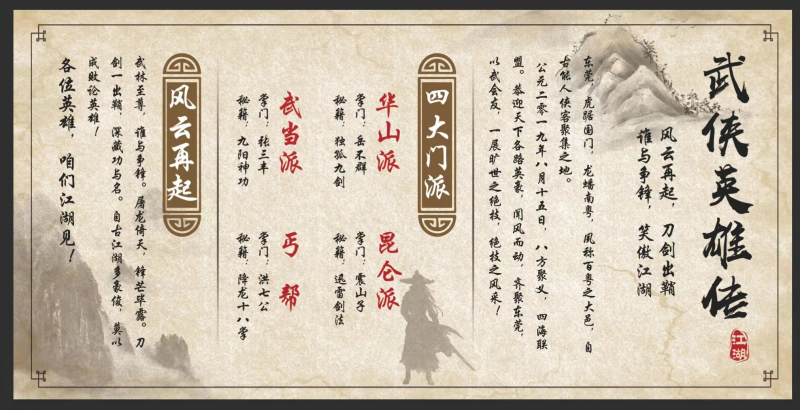 武侠英雄传
江湖
风云再起，刀剑出鞘
谁与争锋，笑傲江湖
东莞，虎踞国门，龙蟠南粤，夙称百粤之大邑，自
古能人侠客聚集之地。
公元二零一九年八月十五日，八方聚义，四海联
盟。恭迎天下各路英豪，闻风而动，齐聚东莞，
以武会友，一展旷世之绝技，绝技之风采！
四大门派
华山派
掌门：岳不群
秘籍：独孤九剑
昆仑派
掌门：震山子
秘籍：迅雷剑法
武当派
掌门：张三丰
秘籍：九阳神功
丐帮
掌门：洪七公
秘籍：降龙十八掌
风云再起
武林至尊，谁与争锋。屠龙倚天，锋芒毕露。刀
剑一出鞘，深藏功与名。自古江湖多豪俊，莫以
成败论英雄！
各位英雄，咱们江湖见！